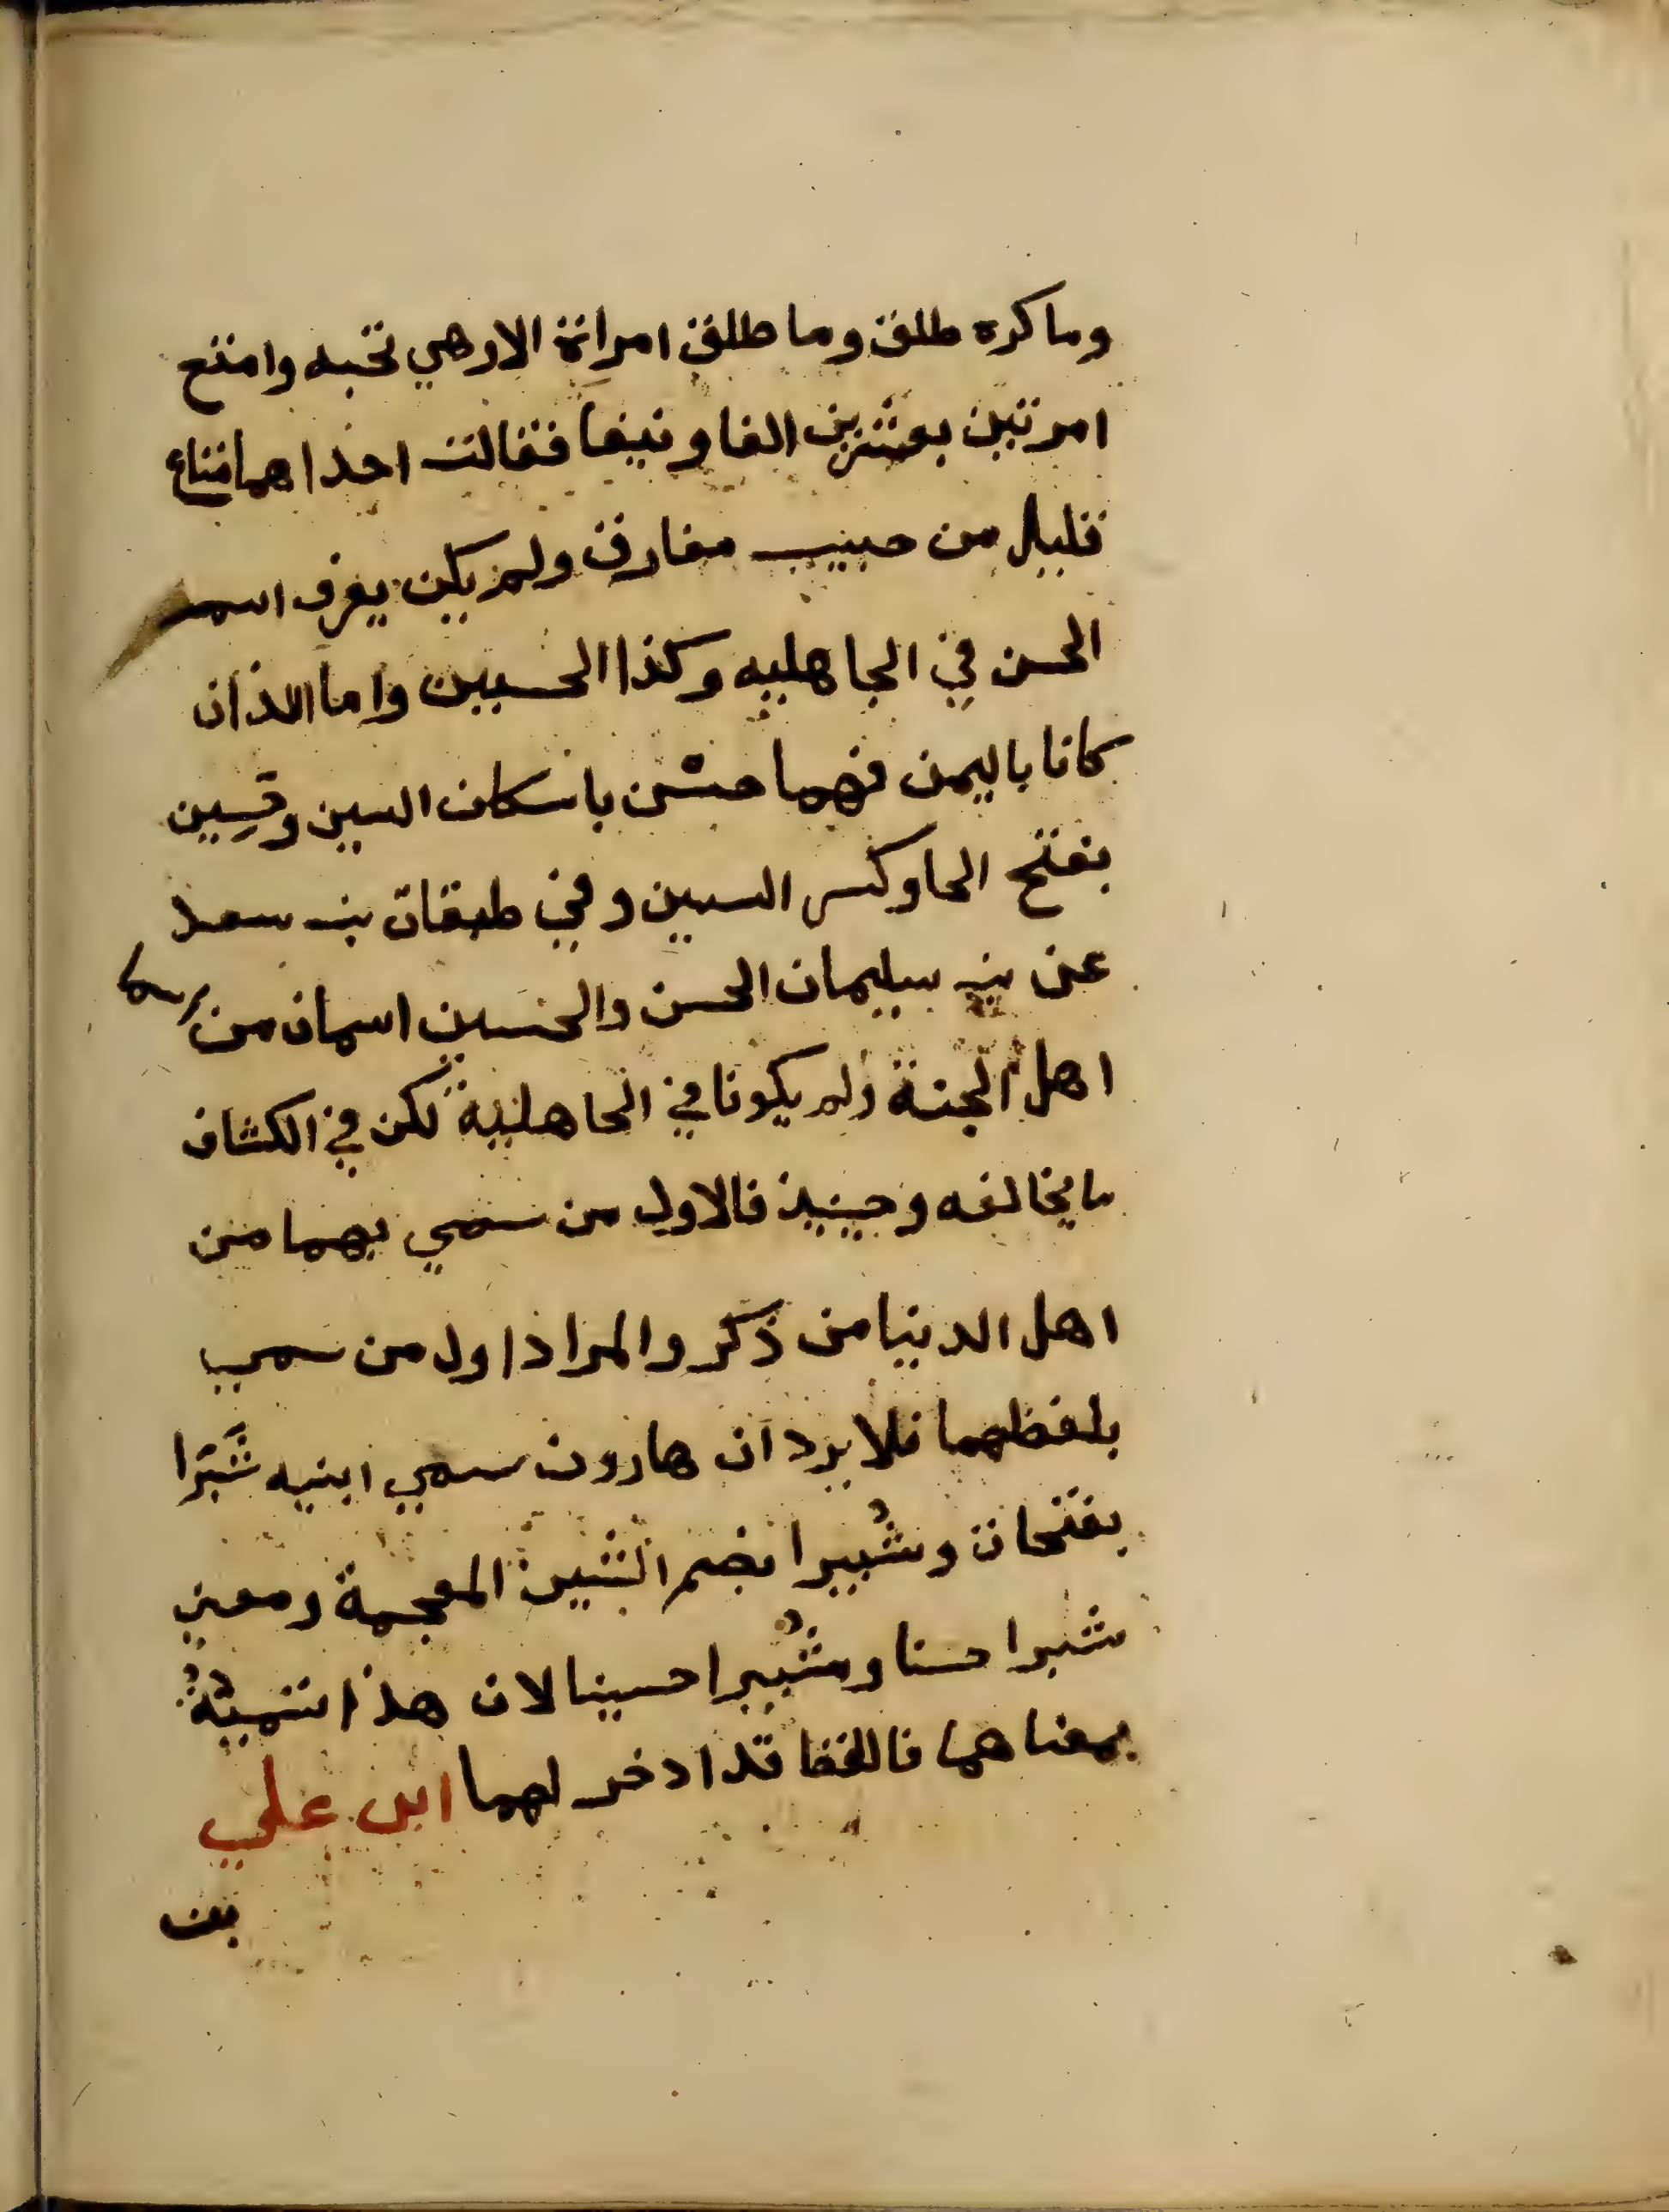 وما كره طلاق وما طلق امراة الا وهي تحبه وامتع
امرتين بعشرين الفا ونيفا فقالت احداهما متاع
قليل من حبيب مفارق ولم يكن يعرف اسم
الحسن في الجاهليه وكذا الحسين واما اللذان
كانا باليمن فهما حسْن باسكان السين وحَسِين
بفتح الحا وكسر السين وفي طبقات بن سعد
عن بن سليمان الحسن والحسين اسمان من اسما
اهل الجنة ولم يكونا في الجاهلية لكن في الكشاف
ما يخالفه وحينيذ فالاول من سمي بهما من
اهل الدنيا من ذكر والمراد اول من سمي
بلفظهما فلا يرد ان هارون سمي ابنيه شَبَّرا
بفتحات وشُبيرا بضم الشين المعجمة ومعني
شبرا حسنا وشُبيرا حسينا لان هذا تسميةُ
بمعناهما فاللفظ قد ادخر لهما ابن علي
بن